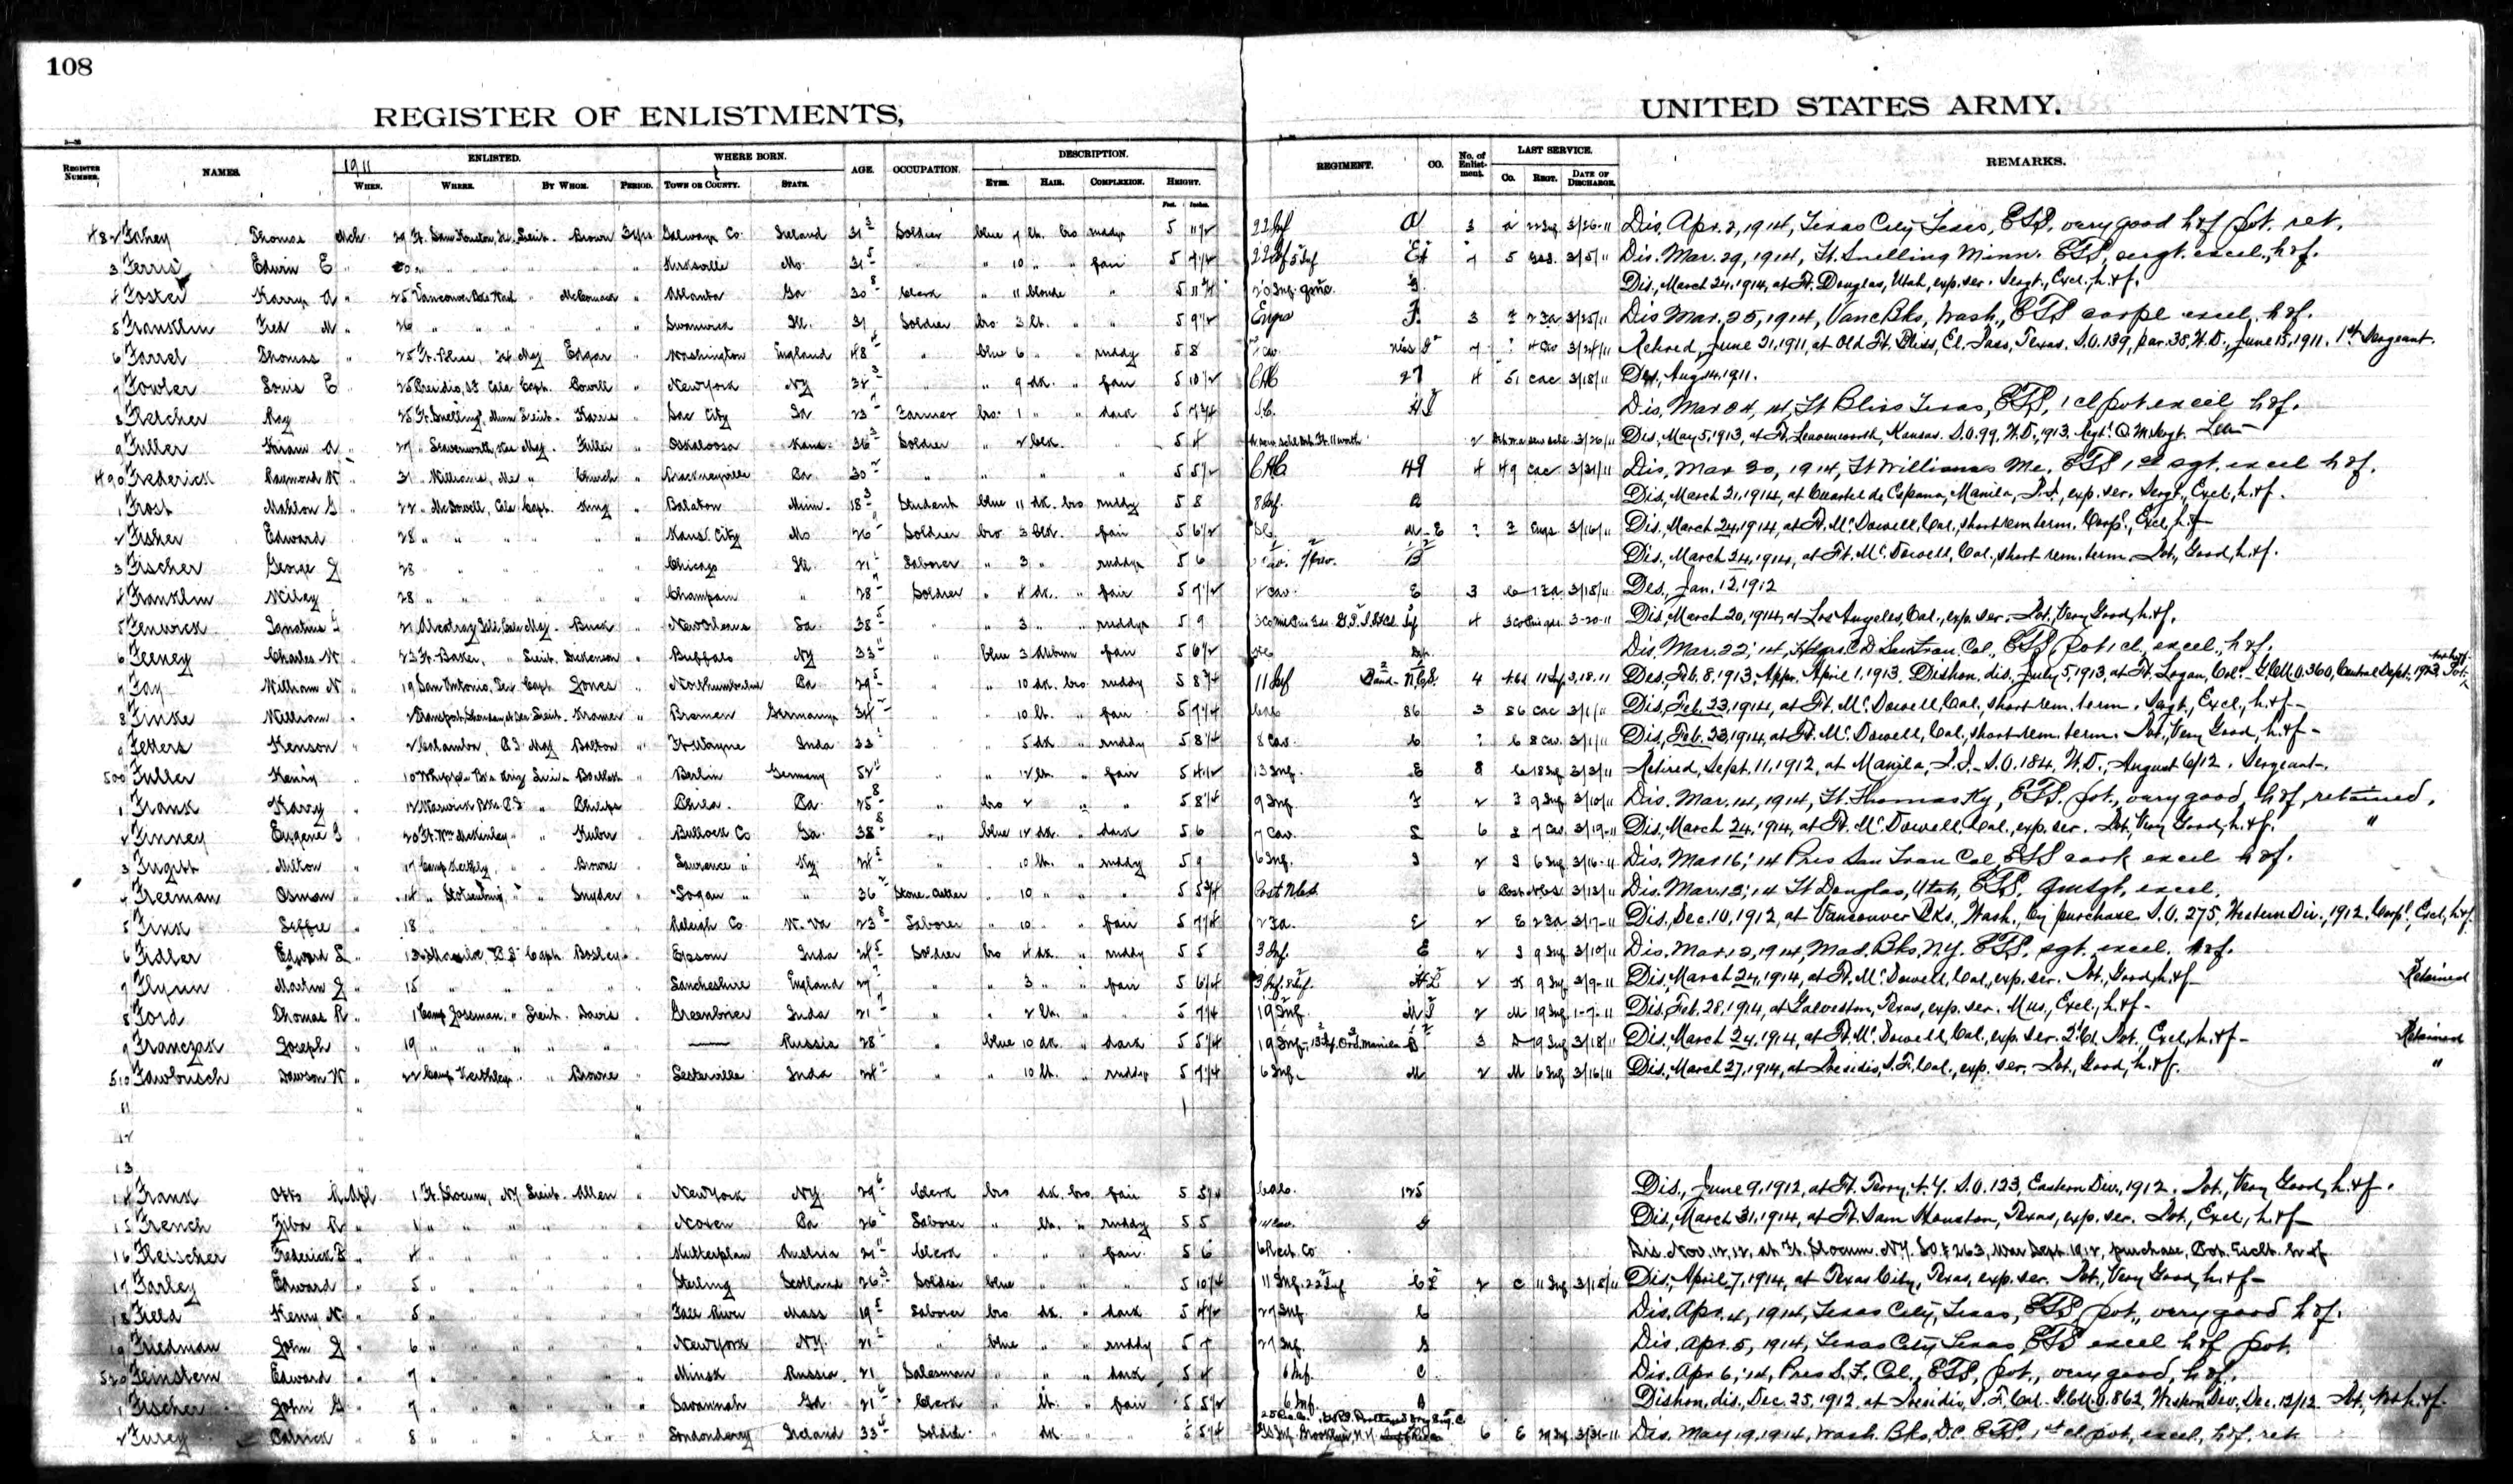 108
REGISTER OF ENLISTMENTS,
UNITED STATES ARMY.
REGISTER NUMBER. NAMES. 1911 ENLISTED. WHERE BORN. AGE. OCCUPATION. DESCRIPTION. REGIMENT. CO. No. of Enlistment. LAST SERVICE. REMARKS.
WHEN. WHERE. BY WHOM. PERIOD. TOWN OR COUNTY. STATE. EYES. HAIR. COMPLEXION. HEIGHT. Co. REGT. DATE OF DISCHARGE.
Feet. Inches.
482 Fahey Thomas Mch. 29 Ft. Sam Houston, Lieut. Brown 3 yrs Galway Co. Ireland 31 Soldier blue lt. bro ruddy 5 11 1/2 22 Inf 3 22 Inf 3/26-11 Dis. Apr. 2, 1914, Texas City Texas, ETS, very good h & f pvt. ret.
3 Ferris Edwin E " Kirksville Mo. 31 " 10 " " fair 5 7 1/4 3/5/11 Dis. Mar. 29, 1914, Ft. Snelling Minn. ETS, sergt. excel., h & f.
4 Foster Harry A " 25 Vancouver Bks Wash " McCormack " Atlanta Ga 30 Clerk " 11 blonde " 5 11 3/4 20 Inf. Dis., March 24, 1914, at Ft. Douglas, Utah, exp. ser. Sergt., Excl., h. & f.
5 Franklin Fred M " 26 " " " " Swanwick Ill. 31 Soldier bro. 3 lt. " " 5 9 1/2 Engrs F. 3 3/25/11 Dis Mar. 25, 1914, Vanc Bks, Wash., ETS corpl excel, h & f.
6 Farrel Thomas " 25 Ft. Bliss, Tex Maj Edgar " Washington England 48 " blue 6 " " ruddy 5 8 4 Cav 3/24/11 Retired, June 21, 1911, at Old Ft. Bliss, El. Paso, Texas. S.O. 139, par. 38, W.D., June 15, 1911. 1st Sergeant.
7 Fowler Louis E " 25 Presidio, S.F. Cala Capt. Powell " New York NY 32 " " 9 dk. " fair 5 10 1/2 CAC 27 4 51 CAC 3/18/11 Des., Aug. 14, 1911.
8 Fletcher Ray 25 Ft. Snelling, Minn Lieut. Harris " Sac City Ia 23 Farmer bro. 1 " " dark 5 7 3/4 Dis, Mar 24, 14, Ft Bliss Texas, ETS, 1 cl pvt excel h & f.
9 Fuller Hiram A " 27 " Leavenworth, Kan Maj. Fuller " Oskaloosa Kans. 36 Soldier " 2 blk. " 5 4 2 3/26/11 Dis, May 5, 1913, at Ft. Leavenworth, Kansas. S.O. 99, W.D., 1913. Regt'l Q.M. Sergt.
490 Frederick Raymond W " 31 " Williams, Me " Church " Brackneyville Pa. 30 " " " " 5 5 1/2 CAC 49 4 49 CAC 3/31/11 Dis, Mar 30, 1914, Ft Williams Me. ETS 1st sgt. excel h & f.
1 Frost Mahlon G " 22 " McDowell, Cala Capt. King " Balaton Minn. 18 Student blue 11 dk. bro ruddy 5 8 8 Inf. Dis, March 21, 1914, at Cuartel de Espana, Manila, P.I., exp. ser. Sergt., Excl., h. & f.
2 Fisher Edward 28 " " " Kans. City Mo 26 Soldier bro 3 blk. fair 5 6 1/2 3/16/11 Dis, March 24, 1914, at Ft. McDowell, Cal, short rem. term. Corpl., Excl, h. & f
3 Fischer George J 28 " " " Chicago Ill. 21 Laborer " 3 " ruddy 5 6 Dis, March 24, 1914, at Ft. McDowell, Cal., short rem. term. Pvt., Good, h. & f.
4 Franklin Wiley 28 " " " Champain " 28 Soldier " 4 dk. " fair 5 7 1/2 Cav. E 3 3/15/11 Des., Jan. 12, 1912
5 Fenwick " 21 Alcatraz Isle, Cala Maj. Buck " New Orleans La. 38 " " 3 " " ruddy 5 9 4 3-20-11 Dis, March 20, 1914, at Los Angeles, Cal., exp. ser. Pvt., Very Good, h. & f.
6 Feeney Charles W " 23 Ft. Baker, " Lieut. Dickenson " Buffalo NY 33 " blue 3 Auburn fair 5 6 1/2 Dis. Mar. 22, '14, Hdqrs C D San Fran. Cal., ETS, pvt 1 cl., excel, h & f.
7 Fay William N " 19 San Antonio, Tex Capt. Jones " Northumberland Pa. 29 " " 10 dk. bro. ruddy 5 8 3/4 11 Inf Band 4 11 Inf 3.18.11 Des., Feb. 8, 1913. Appr. April 1, 1913. Dishon. dis. July 5, 1913, at Ft. Logan, Colo. G.C.M.O. 360, Central Dept. 1913. Pvt.
8 Finke William Lieut. Kramer " Bremen Germany 34 " " 10 lt. " fair 5 7 1/4 CAC 86 3 86 CAC 3/1/11 Dis, Feb. 23, 1914, at Ft. McDowell, Cal., short rem. term. Sergt., Excl., h. & f
9 Fetters Henson " Maj Bolton " Ft. Wayne Inda 33 " " 5 dk " ruddy 5 8 1/4 8 Cav. 8 Cav. 3/1/11 Dis, Feb. 23, 1914, at Ft. McDowell, Cal., short rem. term. Pvt., Very Good, h. & f
500 Fuller Henry " 10 Whipple Bks Ariz Berlin Germany 52 " " 12 lt. " fair 5 4 1/2 13 Inf. E 8 3/3/11 Retired, Sept. 11, 1912, at Manila, P.I. S.O. 184, W.D., August 6/12. Sergeant.
1 Frank Harry " 12 Warwick Bks P.I. " " Phila. Pa. 25 " bro 2 " " 5 8 1/4 9 Inf. 2 9 Inf 3/10/11 Dis. Mar. 14, 1914, Ft. Thomas Ky, ETS. pvt., very good, h & f, retained.
2 Finney Eugene " 20 Ft. Wm McKinley " " Bullock Co Ga. 38 " blue 12 dk. " dark 5 6 7 Cav. 6 7 Cav 3/19-11 Dis, March 24, 1914, at Ft. McDowell, Cal., exp. ser. Pvt, Very Good, h. & f. "
3 Fugitt Milton " 17 Camp Keithley, " " Browne " Lawrence " Ky 24 " " 10 lt. " ruddy 5 9 6 Inf. 2 6 Inf 3/16-11 Dis. Mar 16, '14 Pres San Fran Cal, ETS cook excel h & f.
4 Freeman Osman " 14 " Stotsenburg " " Snyder " Logan " " 36 Stone-cutter " 10 " " " 5 5 3/4 6 3/13/11 Dis. Mar. 13, '14 Ft Douglas, Utah, ETS, qmsgt, excel.
5 Fink " 18 " " " " Raleigh Co. W. Va 23 Laborer " 10 " " fair 5 7 1/4 2 E 3/17-11 Dis., Dec. 10, 1912, at Vancouver Bks., Wash., by purchase. S.O. 275, Western Div., 1912. Corpl., Excl., h & f
6 Fidler Edward L " Capt. Bosley " Epsom Inda 24 Soldier bro 4 dk. " ruddy 5 5 3 Inf. E 2 9 Inf 3/10/11 Dis. Mar. 12, 1914, Mad. Bks, N.Y. ETS. sgt. excel. h & f.
7 Flynn Martin J " 15 " " " " Lancheshire England 27 " " 3 " " fair 5 6 1/4 2 K 9 Inf 3/9-11 Dis, March 24, 1914, at Ft. McDowell, Cal., exp. ser. Pvt., Good, h. & f Retained
8 Ford Thomas R " 1 Camp Jossman, " Lieut. Davis " Greenbrier Inda 21 " " 2 lt. " " 5 7 1/4 19 Inf. 2 M 19 Inf 1-7-11 Dis, Feb. 28, 1914, at Galveston, Texas, exp. ser. Mus., Excl., h. & f
9 Franczak Joseph " 19 " " " " — Russia 28 " blue 10 dk " dark 5 5 1/4 19 Inf. 3 19 Inf 3/18/11 Dis, March 24, 1914, at Ft. McDowell, Cal., exp. ser. Pvt., Excl., h. & f Retained
510 Fawbusch Dawson W " 22 Camp Keithley, " " Browne " Leesville Inda 24 " " 10 lt. " ruddy 5 7 1/4 6 Inf. M 2 M 6 Inf 3/16/11 Dis., March 27, 1914, at Presidio, S.F. Cal., exp. ser. Pvt., Good, h. & f. "
11 " "
12 " "
13 " "
14 Frank Otto R. Apl. 1 Ft. Slocum, NY Lieut. Allen " New York NY. 29 Clerk bro dk. bro. fair 5 5 3/4 CAC. 125 Dis., June 9, 1912, at Ft. Terry, N.Y. S.O. 133, Eastern Div., 1912. Pvt., Very Good, h. & f.
15 French Ziba R " 1 " " " " Noxen Pa 26 Laborer " lt. " ruddy 5 5 Dis, March 31, 1914, at Ft. Sam Houston, Texas, exp. ser. Pvt., Excl., h. & f
16 Fleischer Frederick B " 4 " " " " Kutterplan Austria 21 Clerk " " " fair 5 6 Rect. Co Dis. Nov. 12, 12, at Ft. Slocum, N.Y. S.O. # 263, War Dept. 1912, purchase, Pvt. Exclt. h & f
17 Farley Edward " 5 " " " " Sterling Scotland 26 Soldier blue " " " 5 10 1/4 11 Inf. 22 Inf 2 C 11 Inf 3/15/11 Dis, April 7, 1914, at Texas City, Texas, exp. ser. Pvt., Very Good, h. & f
18 Field Henry N. " 5 " " " " Fall River Mass 19 Laborer bro. dk. " dark 5 4 1/2 27 Inf. Dis. Apr. 4, 1914, Texas City, Texas, ETS pvt., very good h & f.
19 Friedman John J " 6 " " " " New York NY. 21 " blue " " ruddy 27 Inf. Dis. Apr. 5, 1914, Texas City Texas ETS excel h & f pvt.
520 Feinstein Edward " 7 " " " " Minsk Russia. 21 Salesman " " " dark 5 4 6 Inf. C Dis. Apr 6, '14, Pres S.F. Cal., ETS, pvt., very good, h & f.
1 Fischer John G " 7 " " " " Savannah Ga. 21 Clerk " lt. " fair 5 5 1/2 6 Inf. A Dishon. dis., Dec. 25, 1912, at Presidio, S.F. Cal. G.C.M.O. 862, Western Div, Dec. 12/12. Pvt.
2 Furey Patrick 8 " " " Londonderry Ireland 33 Soldier " dk. " 5 5 1/4 6 E 29 Inf 3/31-11 Dis. May 9, 1914, Wash. Bks, D.C. ETS. 1st cl pvt, excel, h & f, ret.